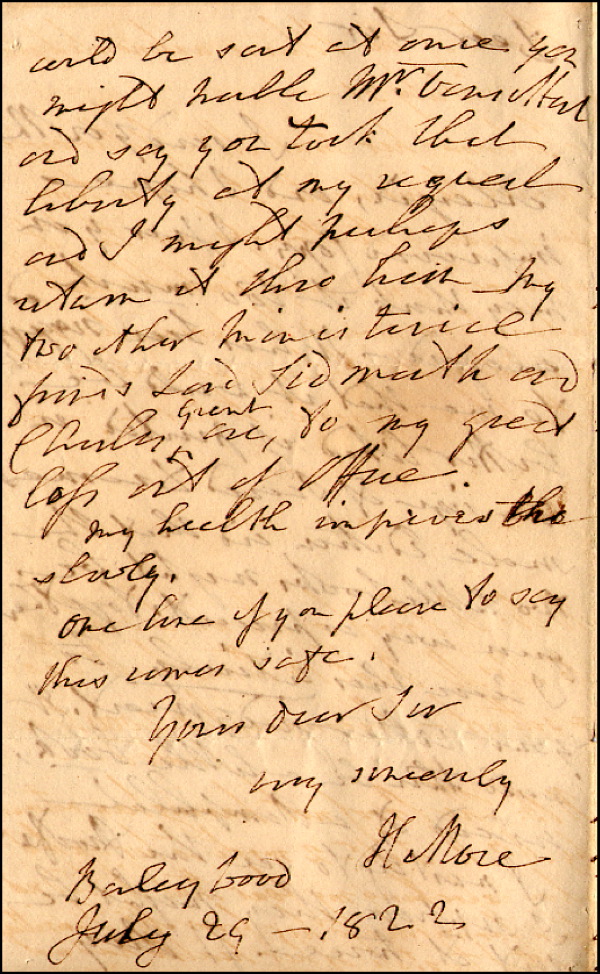 could be sent at once you
might trouble Mr. Vansittart
and say you took that
liberty at my request
and I might perhaps
return it thro him – My
two other ministerial
friends Lord Sidmouth and
Charles Grant are, to my great
loss out of Office.
my health improves tho
slowly.
one line if you please to say
this comes safe.
Yours Dear Sir
very sincerely
H More
Barley Wood
July 29 – 1822